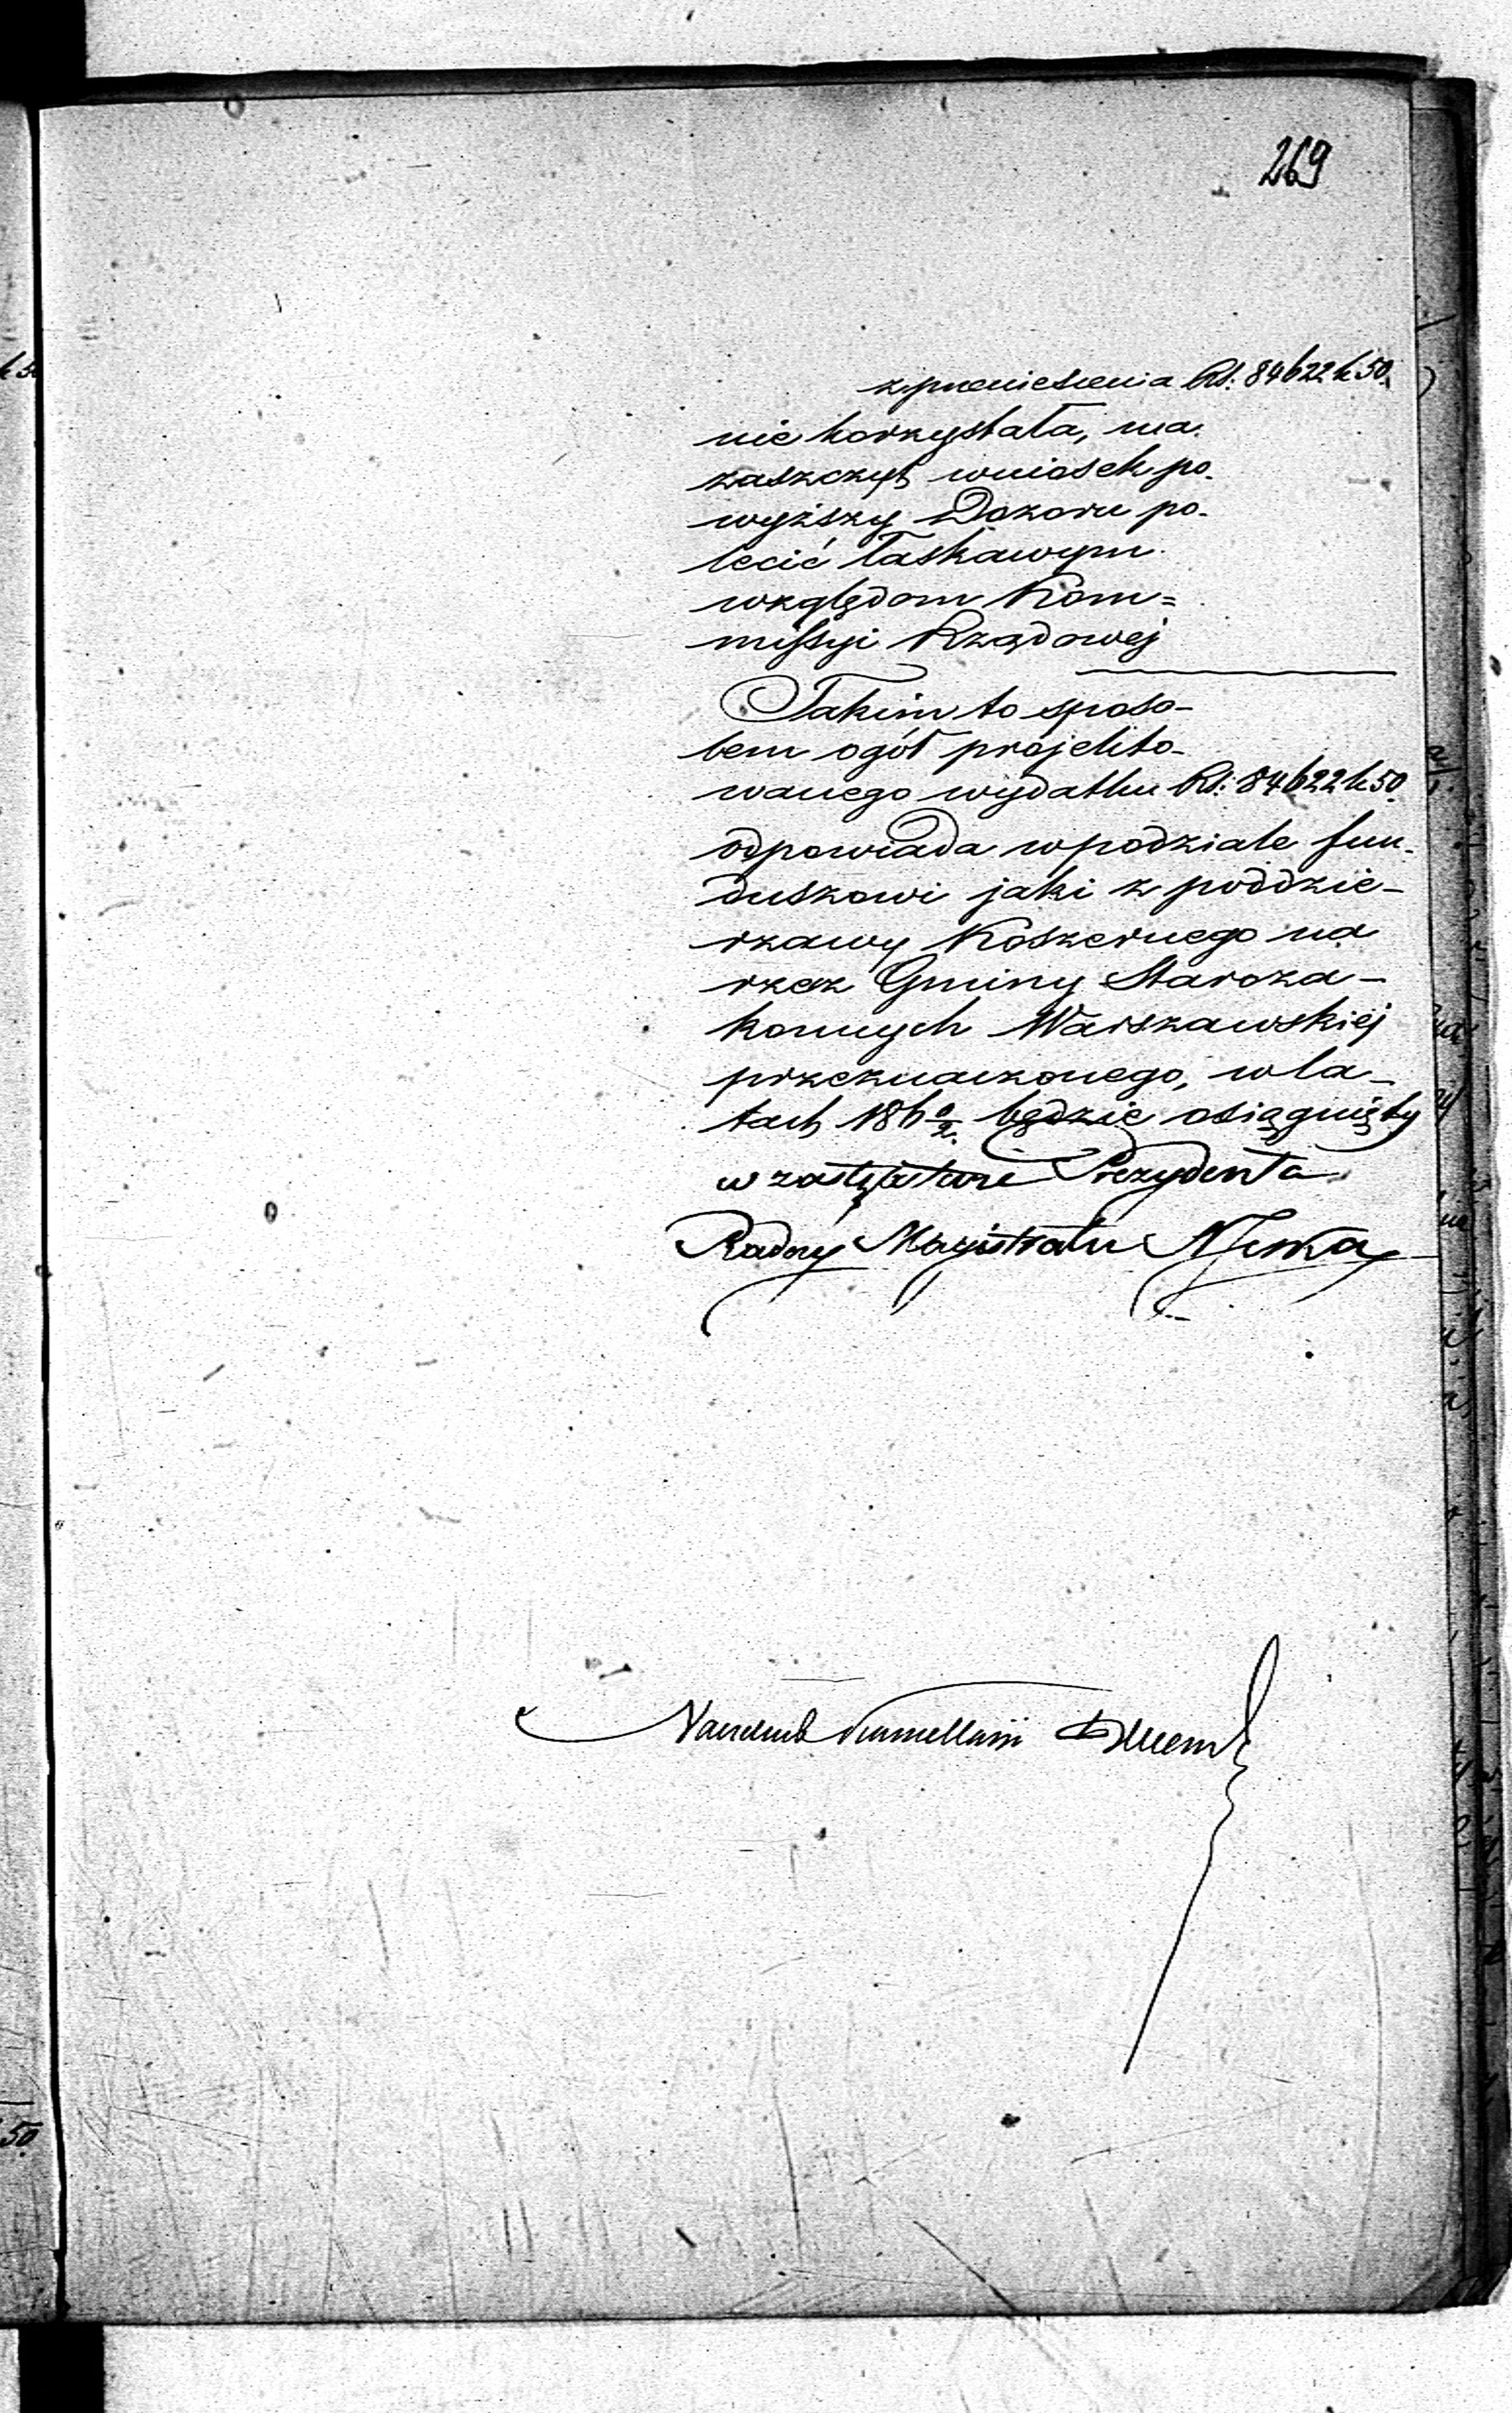 269
z przeniesienia Rs: 84622 k 50.
nie korzystała, ma
zaszczyt wniosek po-
wyższy Dozoru po-
lecić łaskawym
względom Kom=
missyi Rządowej
Takim to sposo-
bem ogół projekto-
wanego wydatku Rs: 84622 k 50.
odpowiada w podziale fun-
duszowi jaki z poddzie-
rzawy Koszernego na
rzecz Gminy Staroza-
konnych Warszawskiej
przeznaczonego, w la-
tach 186 0/2. będzie osiągnięty
w zastępstwie Prezydenta
Radny Magistratu
Naczelnik Kancellarii
50